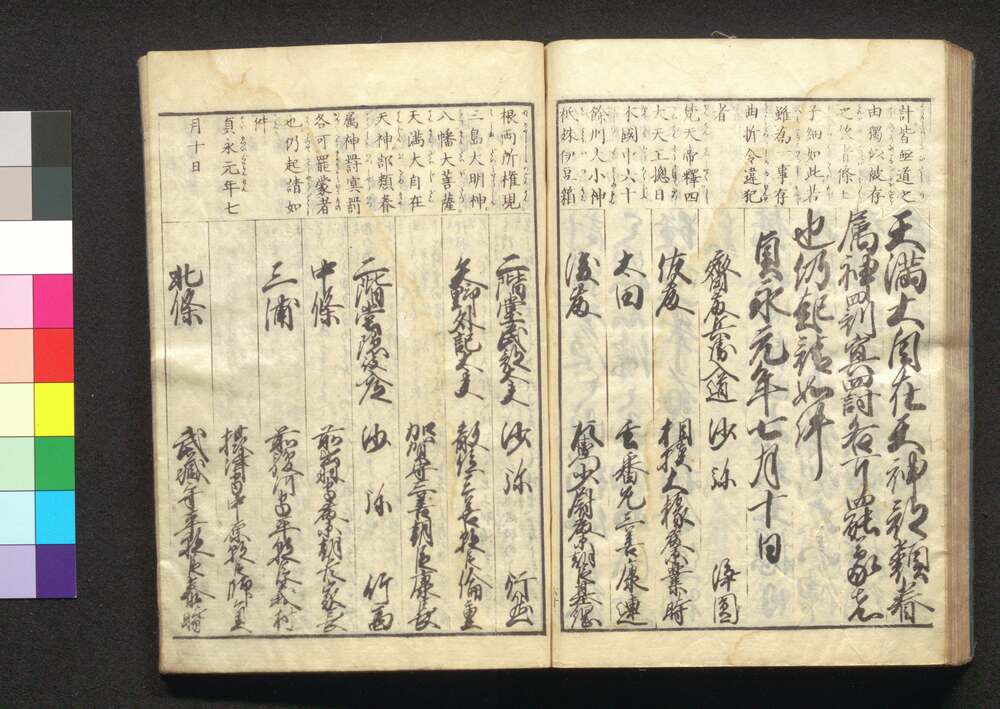 計皆無道之
由獨似被存
之後條々
子細如此若
雖為一事存
曲折令違犯
者
梵天帝釋四
大天王惣日
本國中六十
餘州大小神
祇殊伊豆箱
天満大自在天神部類眷
属神罰冥罸各可罷蒙者
也仍起請如件
貞永元年七月十日
齋藤兵衛入道 沙弥 浄圓
佐藤 相模大掾藤原業時
太田 玄番允三善康連
後藤 少尉藤原朝臣基綱
根両所権現
三島大明神
八幡大菩薩
天満大自在
天神部類眷
属神罸冥罸
各可罷蒙者
也仍起請如
件
貞永元年七
月十日
二階堂民部大夫 沙弥 行盛
矢野外記大夫 散位三善朝臣倫重
加賀守三善朝臣康俊
二階堂隠岐 沙弥 行西
中條 前出羽守藤原朝臣家長
三浦 前駿河守平朝臣義村
摂津守中原朝臣師員
北條 武蔵守平朝臣泰時